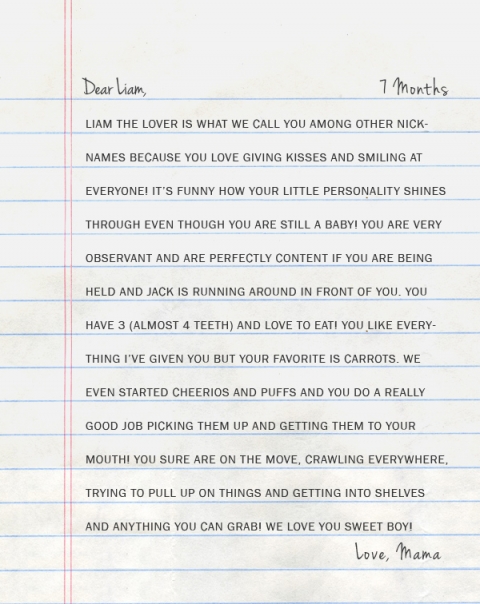 Dear Liam, 7 Months
LIAM THE LOVER IS WHAT WE CALL YOU AMONG OTHER NICK-
NAMES BECAUSE YOU LOVE GIVING KISSES AND SMILING AT
EVERYONE! IT'S FUNNY HOW YOUR LITTLE PERSONALITY SHINES
THROUGH EVEN THOUGH YOU ARE STILL A BABY! YOU ARE VERY
OBSERVANT AND ARE PERFECTLY CONTENT IF YOU ARE BEING
HELD AND JACK IS RUNNING AROUND IN FRONT OF YOU. YOU
HAVE 3 (ALMOST 4 TEETH) AND LOVE TO EAT! YOU LIKE EVERY-
THING I'VE GIVEN YOU BUT YOUR FAVORITE IS CARROTS. WE
EVEN STARTED CHEERIOS AND PUFFS AND YOU DO A REALLY
GOOD JOB PICKING THEM UP AND GETTING THEM TO YOUR
MOUTH! YOU SURE ARE ON THE MOVE, CRAWLING EVERYWHERE,
TRYING TO PULL UP ON THINGS AND GETTING INTO SHELVES
AND ANYTHING YOU CAN GRAB! WE LOVE YOU SWEET BOY!
Love, Mama